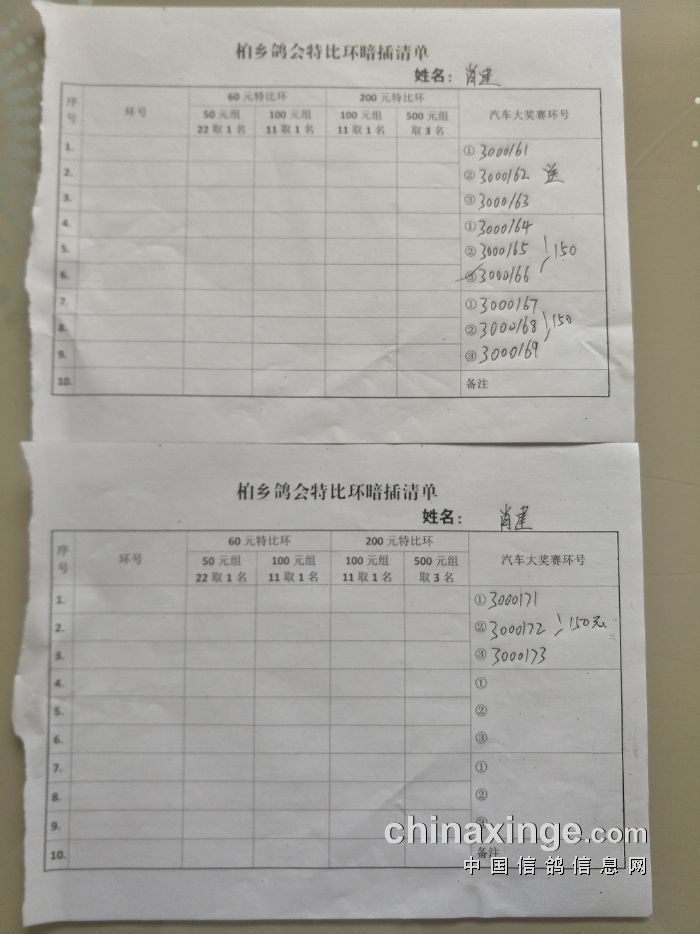 柏乡鸽会特比环暗插清单
姓名：肖建
序号 环号 60元特比环 200元特比环 汽车大奖赛环号
50元组 22取1名 100元组 11取1名 100元组 11取1名 500元组 取3名
1. ①3000161
2. ②3000162 送
3. ③3000163
4. ①3000164
5. ②3000165 150
6. ③3000166
7. ①3000167
8. ②3000168 150
9. ③3000169
10. 备注
柏乡鸽会特比环暗插清单
姓名：肖建
序号 环号 60元特比环 200元特比环 汽车大奖赛环号
50元组 22取1名 100元组 11取1名 100元组 11取1名 500元组 取3名
1. ①3000171
2. ②3000172 150元
3. ③3000173
4. ①
5. ②
6. ③
7. ①
8. ②
9. ③
10. 备注
chinaxinge.com
中国信鸽信息网